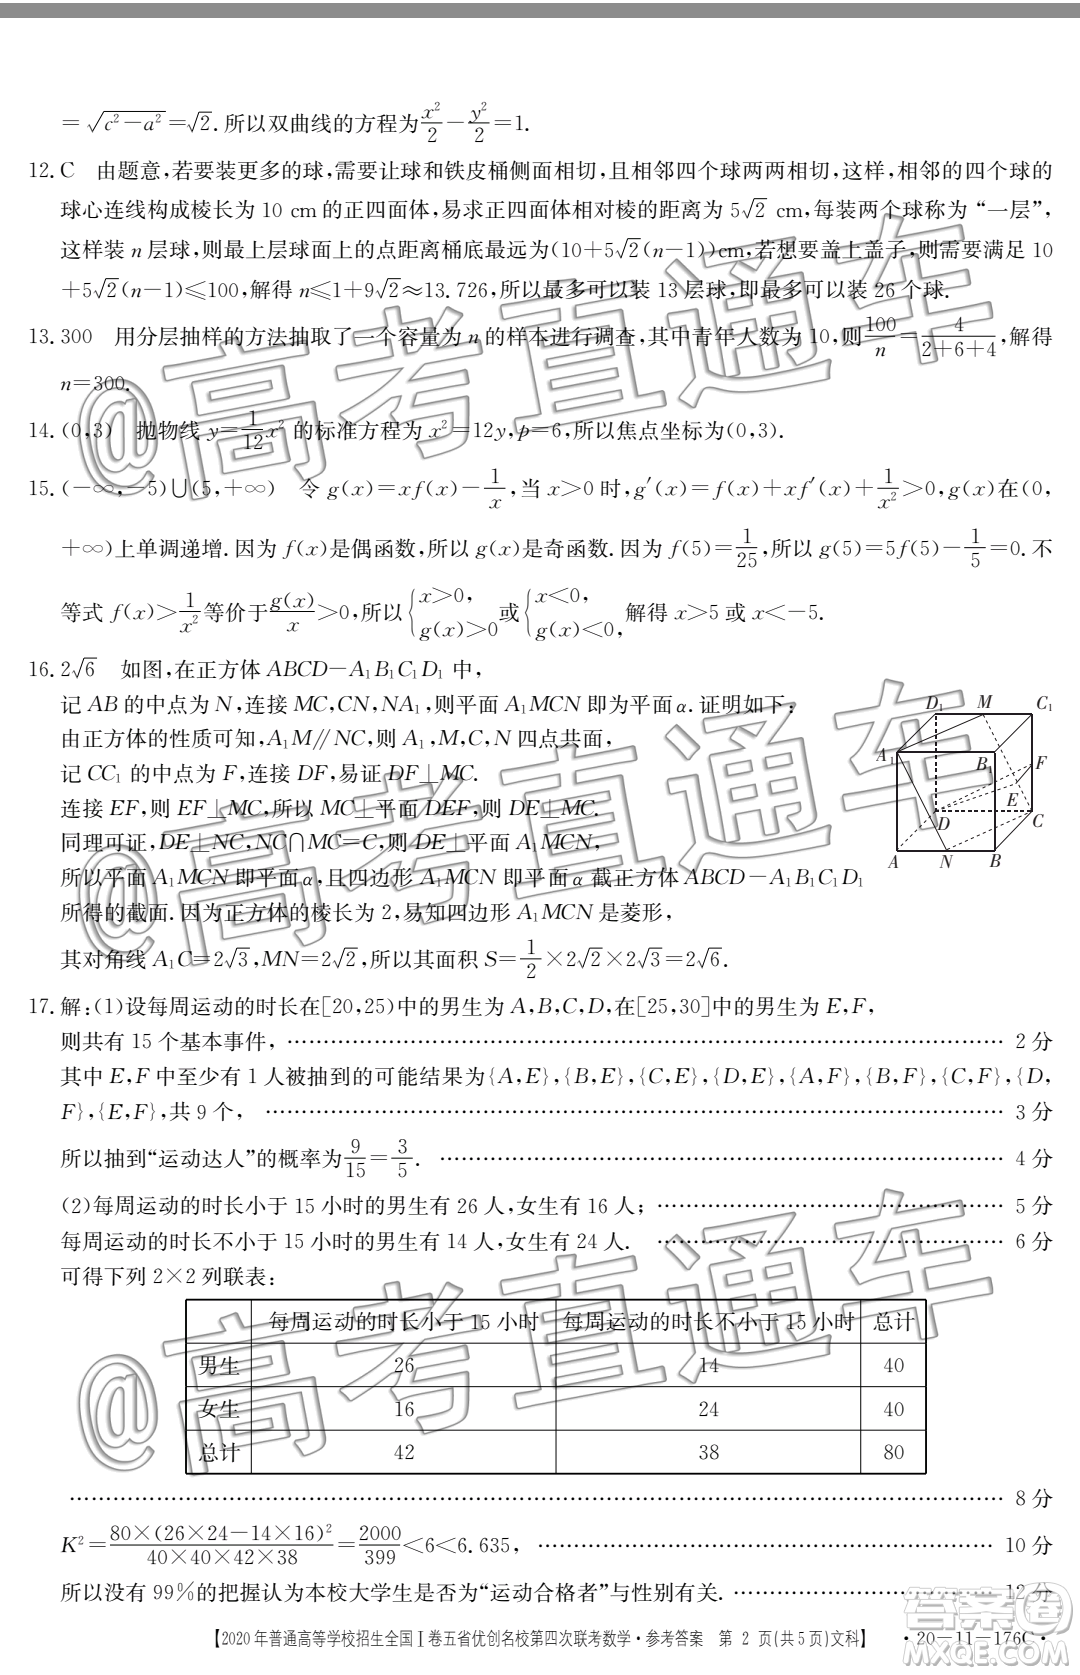 =√(c²-a²)=√2.所以双曲线的方程为x²/2-y²/2=1.
12.C 由题意,若要装更多的球,需要让球和铁皮桶侧面相切,且相邻四个球两两相切,这样,相邻的四个球的
球心连线构成棱长为10 cm的正四面体,易求正四面体相对棱的距离为5√2 cm,每装两个球称为“一层”,
这样装n层球,则最上层球面上的点距离桶底最远为(10+5√2(n-1))cm,若想要盖上盖子,则需要满足10
+5√2(n-1)≤100,解得n≤1+9√2≈13.726,所以最多可以装13层球,即最多可以装26个球.
13.300 用分层抽样的方法抽取了一个容量为n的样本进行调查,其中青年人数为10,则100/n=4/(2+6+4),解得
n=300.
14.(0,3) 抛物线y=1/12x²的标准方程为x²=12y,p=6,所以焦点坐标为(0,3).
15.(-∞,-5)∪(5,+∞) 令g(x)=xf(x)-1/x,当x>0时,g′(x)=f(x)+xf′(x)+1/x²>0,g(x)在(0,
+∞)上单调递增.因为f(x)是偶函数,所以g(x)是奇函数.因为f(5)=1/25,所以g(5)=5f(5)-1/5=0.不
等式f(x)>1/x²等价于g(x)/x>0,所以{x>0,g(x)>0或{x<0,g(x)<0,解得x>5或x<-5.
16.2√6 如图,在正方体ABCD-A₁B₁C₁D₁中,
记AB的中点为N,连接MC,CN,NA₁,则平面A₁MCN即为平面α.证明如下:
由正方体的性质可知,A₁M∥NC,则A₁,M,C,N四点共面,
记CC₁的中点为F,连接DF,易证DF⊥MC.
连接EF,则EF⊥MC,所以MC⊥平面DEF,则DE⊥MC.
同理可证,DE⊥NC,NC∩MC=C,则DE⊥平面A₁MCN,
所以平面A₁MCN即平面α,且四边形A₁MCN即平面α截正方体ABCD-A₁B₁C₁D₁
所得的截面.因为正方体的棱长为2,易知四边形A₁MCN是菱形,
其对角线A₁C=2√3,MN=2√2,所以其面积S=1/2×2√2×2√3=2√6.
D₁ M C₁
A₁ B₁ F
E
D C
A N B
17.解:(1)设每周运动的时长在[20,25)中的男生为A,B,C,D,在[25,30]中的男生为E,F,
则共有15个基本事件,…… 2分
其中E,F中至少有1人被抽到的可能结果为{A,E},{B,E},{C,E},{D,E},{A,F},{B,F},{C,F},{D,
F},{E,F},共9个,…… 3分
所以抽到“运动达人”的概率为9/15=3/5.…… 4分
(2)每周运动的时长小于15小时的男生有26人,女生有16人;…… 5分
每周运动的时长不小于15小时的男生有14人,女生有24人.…… 6分
可得下列2×2列联表:
每周运动的时长小于15小时 每周运动的时长不小于15小时 总计
男生 26 14 40
女生 16 24 40
总计 42 38 80
…… 8分
K²=80×(26×24-14×16)²/(40×40×42×38)=2000/399<6<6.635,…… 10分
所以没有99%的把握认为本校大学生是否为“运动合格者”与性别有关.…… 12分
【2020年普通高等学校招生全国Ⅰ卷五省优创名校第四次联考数学·参考答案 第2页(共5页)文科】 ·20-11-176C·
@高考直通车
@高考直通车
@高考直通车
答案圈